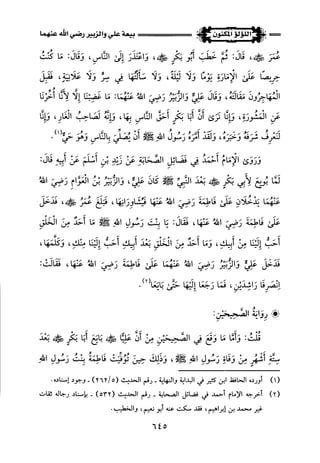 بيعة علي والزبير رضي الله عنهما
اللؤلؤ المكنون
عُمَرَ ﷺ، قَالَ: ثُمَّ خَطَبَ أَبُو بَكْرٍ ﷺ، وَاعْتَذَرَ إِلَى النَّاسِ، وَقَالَ: مَا كُنْتُ
حَرِيصًا عَلَى الْإِمَارَةِ يَوْمًا وَلَا لَيْلَةً، وَلَا سَأَلْتُهَا فِي سِرٍّ وَلَا عَلَانِيَةٍ، فَقَبِلَ
الْمُهَاجِرُونَ مَقَالَتَهُ، وَقَالَ عَلِيٌّ وَالزُّبَيْرُ رَضِيَ اللهُ عَنْهُمَا: مَا غَضِبْنَا إِلَّا لِأَنَّا أُخِّرْنَا
عَنِ الْمَشُورَةِ، وَإِنَّا نَرَى أَنَّ أَبَا بَكْرٍ أَحَقُّ النَّاسِ بِهَا، وَإِنَّهُ لَصَاحِبُ الْغَارِ، وَإِنَّا
لَنَعْرِفُ شَرَفَهُ وَخَيْرَهُ، وَلَقَدْ أَمَرَهُ رَسُولُ اللهِ ﷺ أَنْ يُصَلِّيَ بِالنَّاسِ وَهُوَ حَيٌّ(١).
وَرَوَى الْإِمَامُ أَحْمَدُ فِي فَضَائِلِ الصَّحَابَةِ عَنْ زَيْدِ بْنِ أَسْلَمَ عَنْ أَبِيهِ قَالَ:
لَمَّا بُويِعَ لِأَبِي بَكْرٍ ﷺ بَعْدَ النَّبِيِّ ﷺ كَانَ عَلِيٌّ، وَالزُّبَيْرُ بْنُ الْعَوَّامِ رَضِيَ اللهُ
عَنْهُمَا يَدْخُلَانِ عَلَى فَاطِمَةَ رَضِيَ اللهُ عَنْهَا، فَيُشَاوِرَانِهَا، فَبَلَغَ عُمَرَ ﷺ، فَدَخَلَ
عَلَى فَاطِمَةَ رَضِيَ اللهُ عَنْهَا، فَقَالَ: يَا بِنْتَ رَسُولِ اللهِ ﷺ مَا أَحَدٌ مِنَ الْخَلْقِ
أَحَبُّ إِلَيْنَا مِنْ أَبِيكِ، وَمَا أَحَدٌ مِنَ الْخَلْقِ بَعْدَ أَبِيكِ أَحَبُّ إِلَيْنَا مِنْكِ، وَكَلَّمَهَا،
فَدَخَلَ عَلِيٌّ وَالزُّبَيْرُ رَضِيَ اللهُ عَنْهُمَا عَلَى فَاطِمَةَ رَضِيَ اللهُ عَنْهَا، فَقَالَتْ:
انْصَرِفَا رَاشِدَيْنِ، فَمَا رَجَعَا إِلَيْهَا حَتَّى بَايَعَا(٢).
رِوَايَةُ الصَّحِيحَيْنِ:
قُلْتُ: وَأَمَّا مَا وَقَعَ فِي الصَّحِيحَيْنِ مِنْ أَنَّ عَلِيًّا ﷺ بَايَعَ أَبَا بَكْرٍ ﷺ بَعْدَ
سِتَّةِ أَشْهُرٍ مِنْ وَفَاةِ رَسُولِ اللهِ ﷺ، وَذَلِكَ حِينَ تُوُفِّيَتْ فَاطِمَةُ بِنْتُ رَسُولِ اللهِ
(١) أورده الحافظ ابن كثير في البداية والنهاية - رقم الحديث (٢٦٢/٥) - وجود إسناده.
(٢) أخرجه الإمام أحمد في فضائل الصحابة - رقم الحديث (٥٣٢) - بإسناد رجاله ثقات
غير محمد بن إبراهيم، فقد سكت عنه أبو نعيم، والخطيب.
٦٤٥